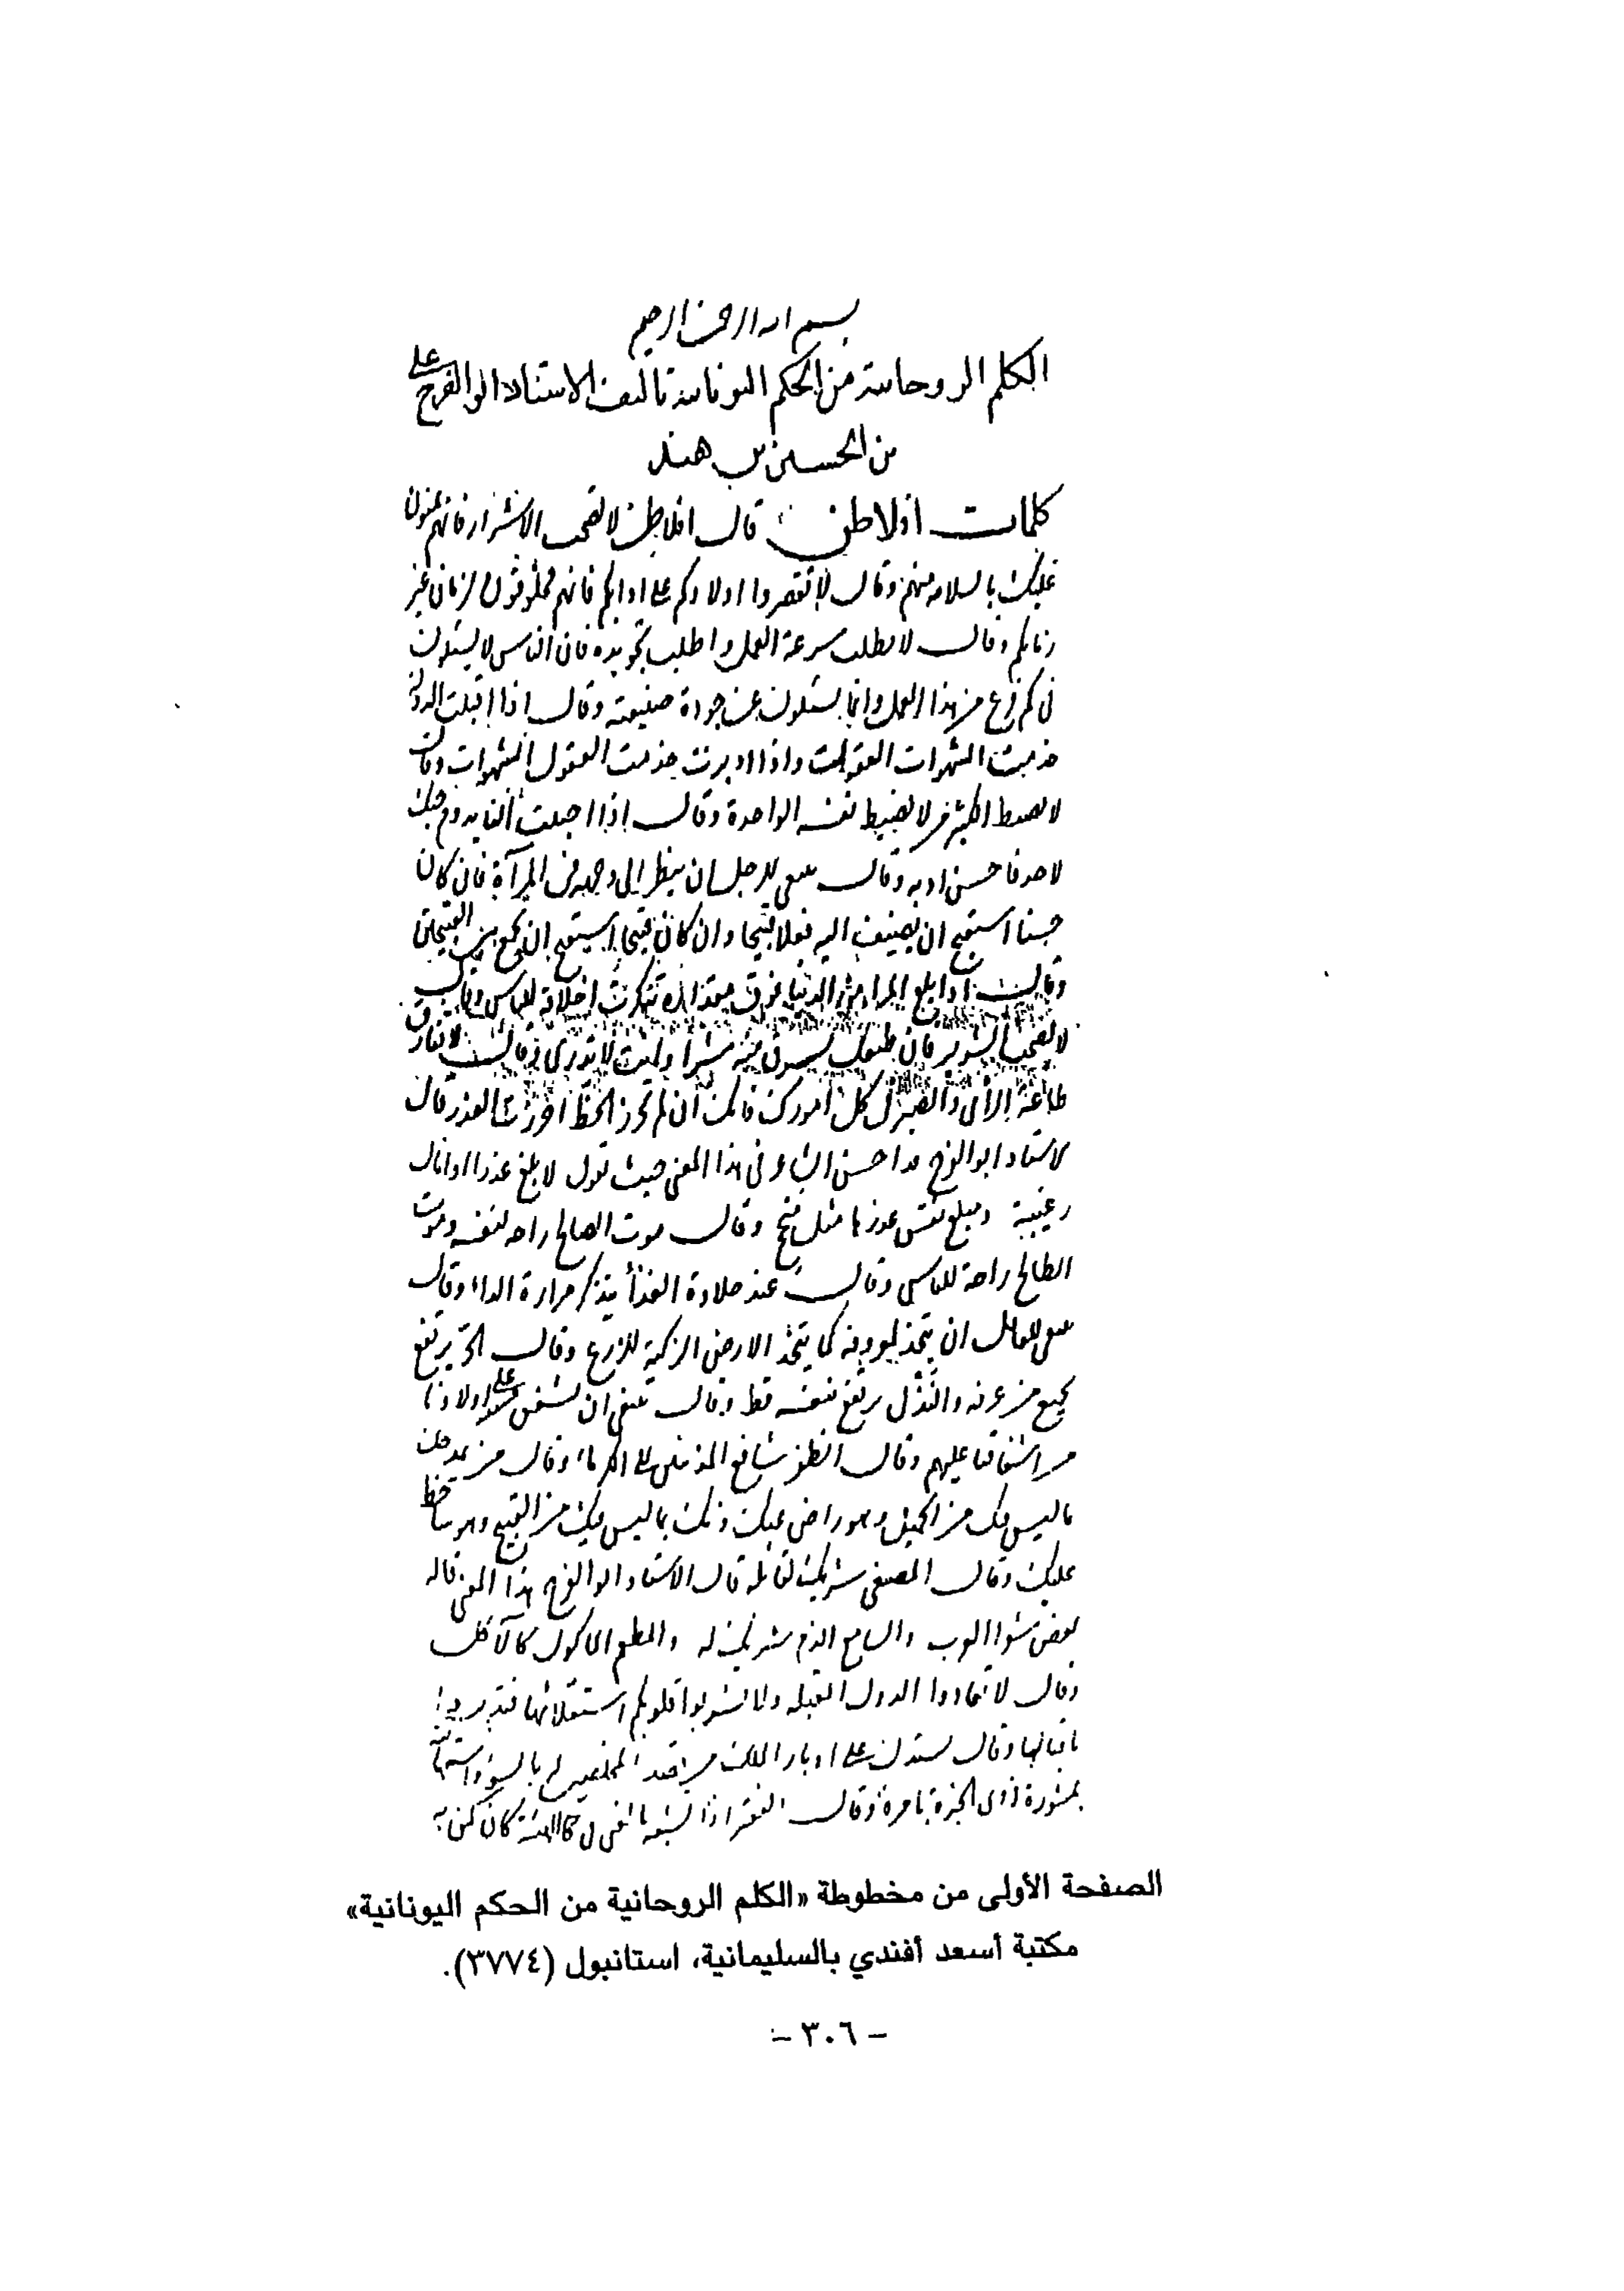 بسم الله الرحمن الرحيم
الكلم الروحانية من الحكم اليونانية تاليف الاستاد ابو الفرج على
بن الحسين بن هند
كلمات افلاطن قال افلاطن لا تصحب الاشرار فانهم يمنون
عليك بالسلامة منهم وقال لا تقصروا اولادكم على ادابكم فانهم مخلوقون لزمان غير
زمانكم وقال لا تطلب سرعة العمل واطلب تجويده فان الناس لا يسئلون
فى كم فرغ من هذا العمل وانما يسئلون عن جودة صنيعته وقال اذا اقبلت الدولة
خدمت الشهوات العقول واذا ادبرت خدمت العقول الشهوات وقال
لا يضبط الكثير من لا يضبط نفسه الواحدة وقال اذا احببت ان يدوم حبك
لاحد فاحسن ادبه وقال ينبغى للرجل ان ينظر الى وجهه فى المرآة فان كان
حسنا استقبح ان يضيف اليه فعلا قبيحا وان كان قبيحا استقبح ان يجمع بين القبيحين
وقال اذا بلغ المرء من الدنيا فوق مقداره تنكرت اخلاقه للناس وقال
لا تصحب الشرير فان طبعك يسرق منه شرا وانت لا تدرى وقال لا تفارق
طاعة الرأى والصبر فى كل امورك فانك ان لم تحرز الحظ احرزت العذر قال
الاستاد ابو الفرج ما احسن الشاعر فى هذا المعنى حيث يقول لابلغ عذرا او انال
رغيبة ومبلغ نفس عذرها مثل منجح وقال موت الصالح راحة لنفسه وموت
الطالح راحة للناس وقال عند حلاوة الغذاء يتذكر مرارة الداء وقال
ينبغى للعاقل ان يتخذ لمعروفه كما يتخذ الارض الزكية للزرع وقال الحر يرتفع
بجميع من عرفه والنذل يرتفع بنفسه فقط وقال ينبغى ان نشفق على اولادنا
من اشفاقنا عليهم وقال الظفر شافع المذنبين الى الكرماء وقال من مدحك
بما ليس فيك من الجميل وهو راض عنك ذمك بما ليس فيك من القبيح وهو ساخط
عليك وقال المصغى شريك لقائله قال الاستاد ابو الفرج هذا المعنى قاله
بعض شعراء العرب والسامع الذم شريك له والمطعم المأكول كالآكل
وقال لا تعادوا الدول المقبلة ولا تشربوا قلوبكم استثقالها فتدبروا
باقبالها وقال يستدل على ادبار الملك من قصد المخلصين له بالسوء واستهانته
بمشورة ذوى الخبرة بامره وقال الفقير اذا تشبه بالغنى كان كمن به
الصفحة الأولى من مخطوطة «الكلم الروحانية من الحكم اليونانية»
مكتبة أسعد أفندي بالسليمانية، استانبول (٣٧٧٤).
- ٣٠٦ -